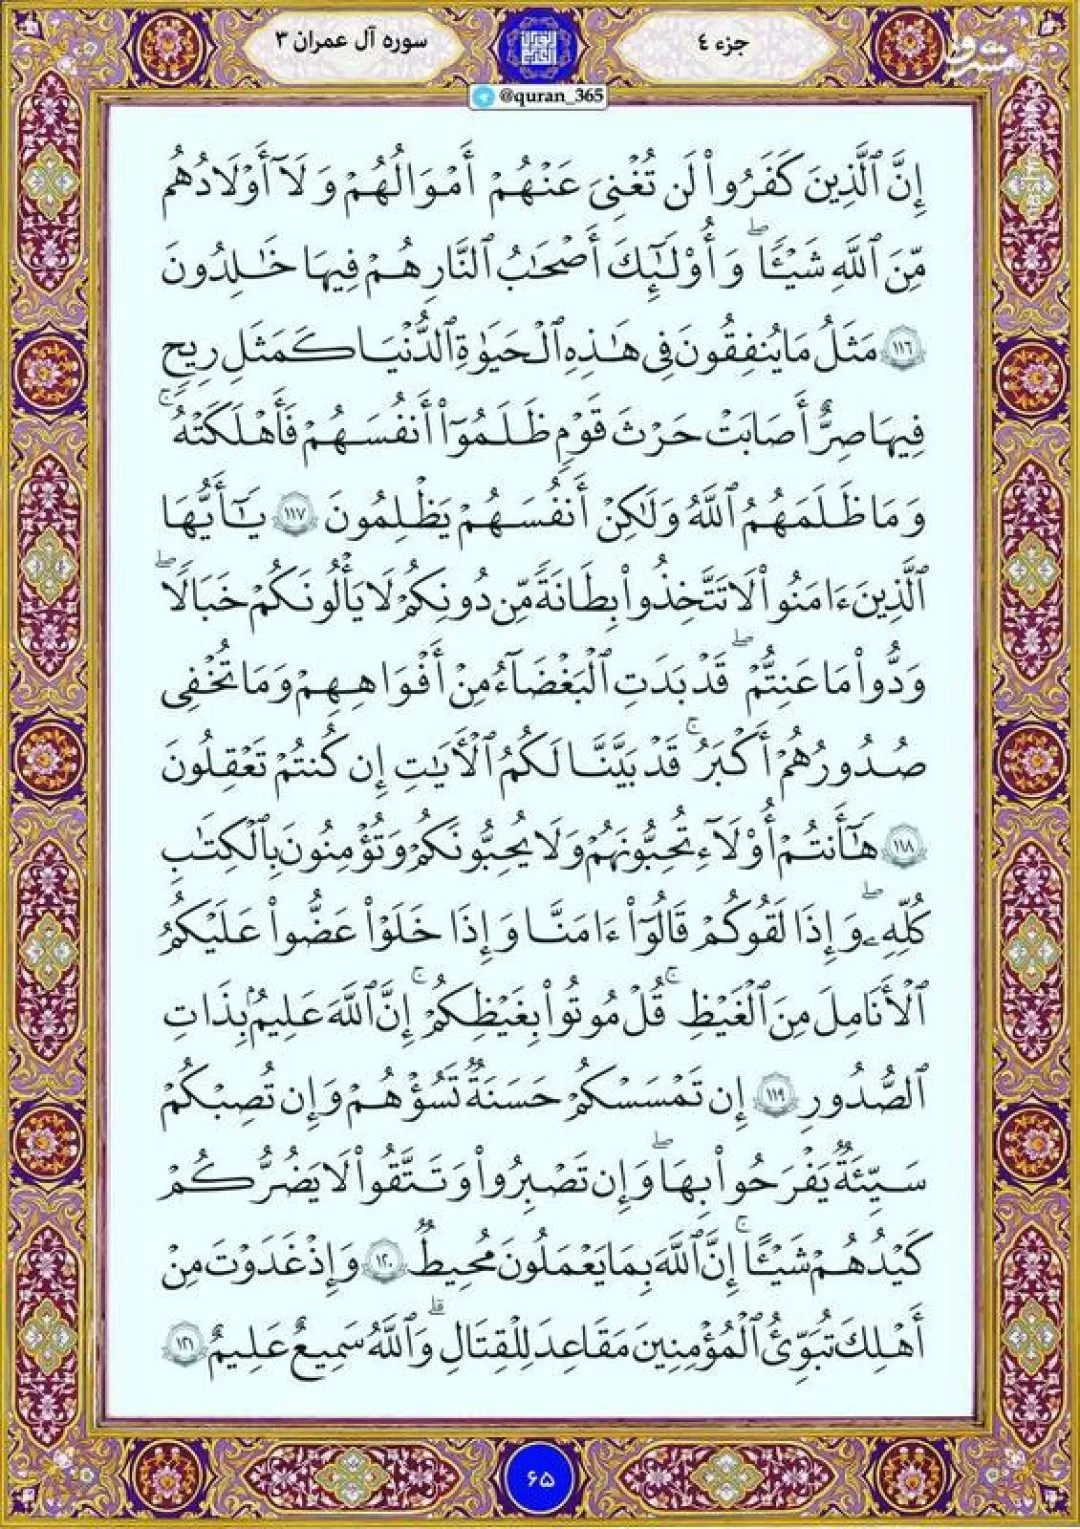 جزء ٤
سوره آل عمران ٣
@quran_365
إِنَّ ٱلَّذِينَ كَفَرُوا۟ لَن تُغْنِىَ عَنْهُمْ أَمْوَٰلُهُمْ وَلَآ أَوْلَٰدُهُم
مِّنَ ٱللَّهِ شَيْـًٔا ۖ وَأُو۟لَٰٓئِكَ أَصْحَٰبُ ٱلنَّارِ هُمْ فِيهَا خَٰلِدُونَ
١١٦ مَثَلُ مَا يُنفِقُونَ فِى هَٰذِهِ ٱلْحَيَوٰةِ ٱلدُّنْيَا كَمَثَلِ رِيحٍ
فِيهَا صِرٌّ أَصَابَتْ حَرْثَ قَوْمٍ ظَلَمُوٓا۟ أَنفُسَهُمْ فَأَهْلَكَتْهُ ۚ
وَمَا ظَلَمَهُمُ ٱللَّهُ وَلَٰكِنْ أَنفُسَهُمْ يَظْلِمُونَ ١١٧ يَٰٓأَيُّهَا
ٱلَّذِينَ ءَامَنُوا۟ لَا تَتَّخِذُوا۟ بِطَانَةً مِّن دُونِكُمْ لَا يَأْلُونَكُمْ خَبَالًا ۖ
وَدُّوا۟ مَا عَنِتُّمْ ۖ قَدْ بَدَتِ ٱلْبَغْضَآءُ مِنْ أَفْوَٰهِهِمْ وَمَا تُخْفِى
صُدُورُهُمْ أَكْبَرُ ۚ قَدْ بَيَّنَّا لَكُمُ ٱلْءَايَٰتِ إِن كُنتُمْ تَعْقِلُونَ
١١٨ هَٰٓأَنتُمْ أُو۟لَآءِ تُحِبُّونَهُمْ وَلَا يُحِبُّونَكُمْ وَتُؤْمِنُونَ بِٱلْكِتَٰبِ
كُلِّهِۦ ۖ وَإِذَا لَقُوكُمْ قَالُوٓا۟ ءَامَنَّا وَإِذَا خَلَوْا۟ عَضُّوا۟ عَلَيْكُمُ
ٱلْأَنَامِلَ مِنَ ٱلْغَيْظِ ۚ قُلْ مُوتُوا۟ بِغَيْظِكُمْ ۚ إِنَّ ٱللَّهَ عَلِيمٌۢ بِذَاتِ
ٱلصُّدُورِ ١١٩ إِن تَمْسَسْكُمْ حَسَنَةٌ تَسُؤْهُمْ وَإِن تُصِبْكُمْ
سَيِّئَةٌ يَفْرَحُوا۟ بِهَا ۖ وَإِن تَصْبِرُوا۟ وَتَتَّقُوا۟ لَا يَضُرُّكُمْ
كَيْدُهُمْ شَيْـًٔا ۗ إِنَّ ٱللَّهَ بِمَا يَعْمَلُونَ مُحِيطٌ ١٢٠ وَإِذْ غَدَوْتَ مِنْ
أَهْلِكَ تُبَوِّئُ ٱلْمُؤْمِنِينَ مَقَٰعِدَ لِلْقِتَالِ ۗ وَٱللَّهُ سَمِيعٌ عَلِيمٌ ١٢١
۶۵